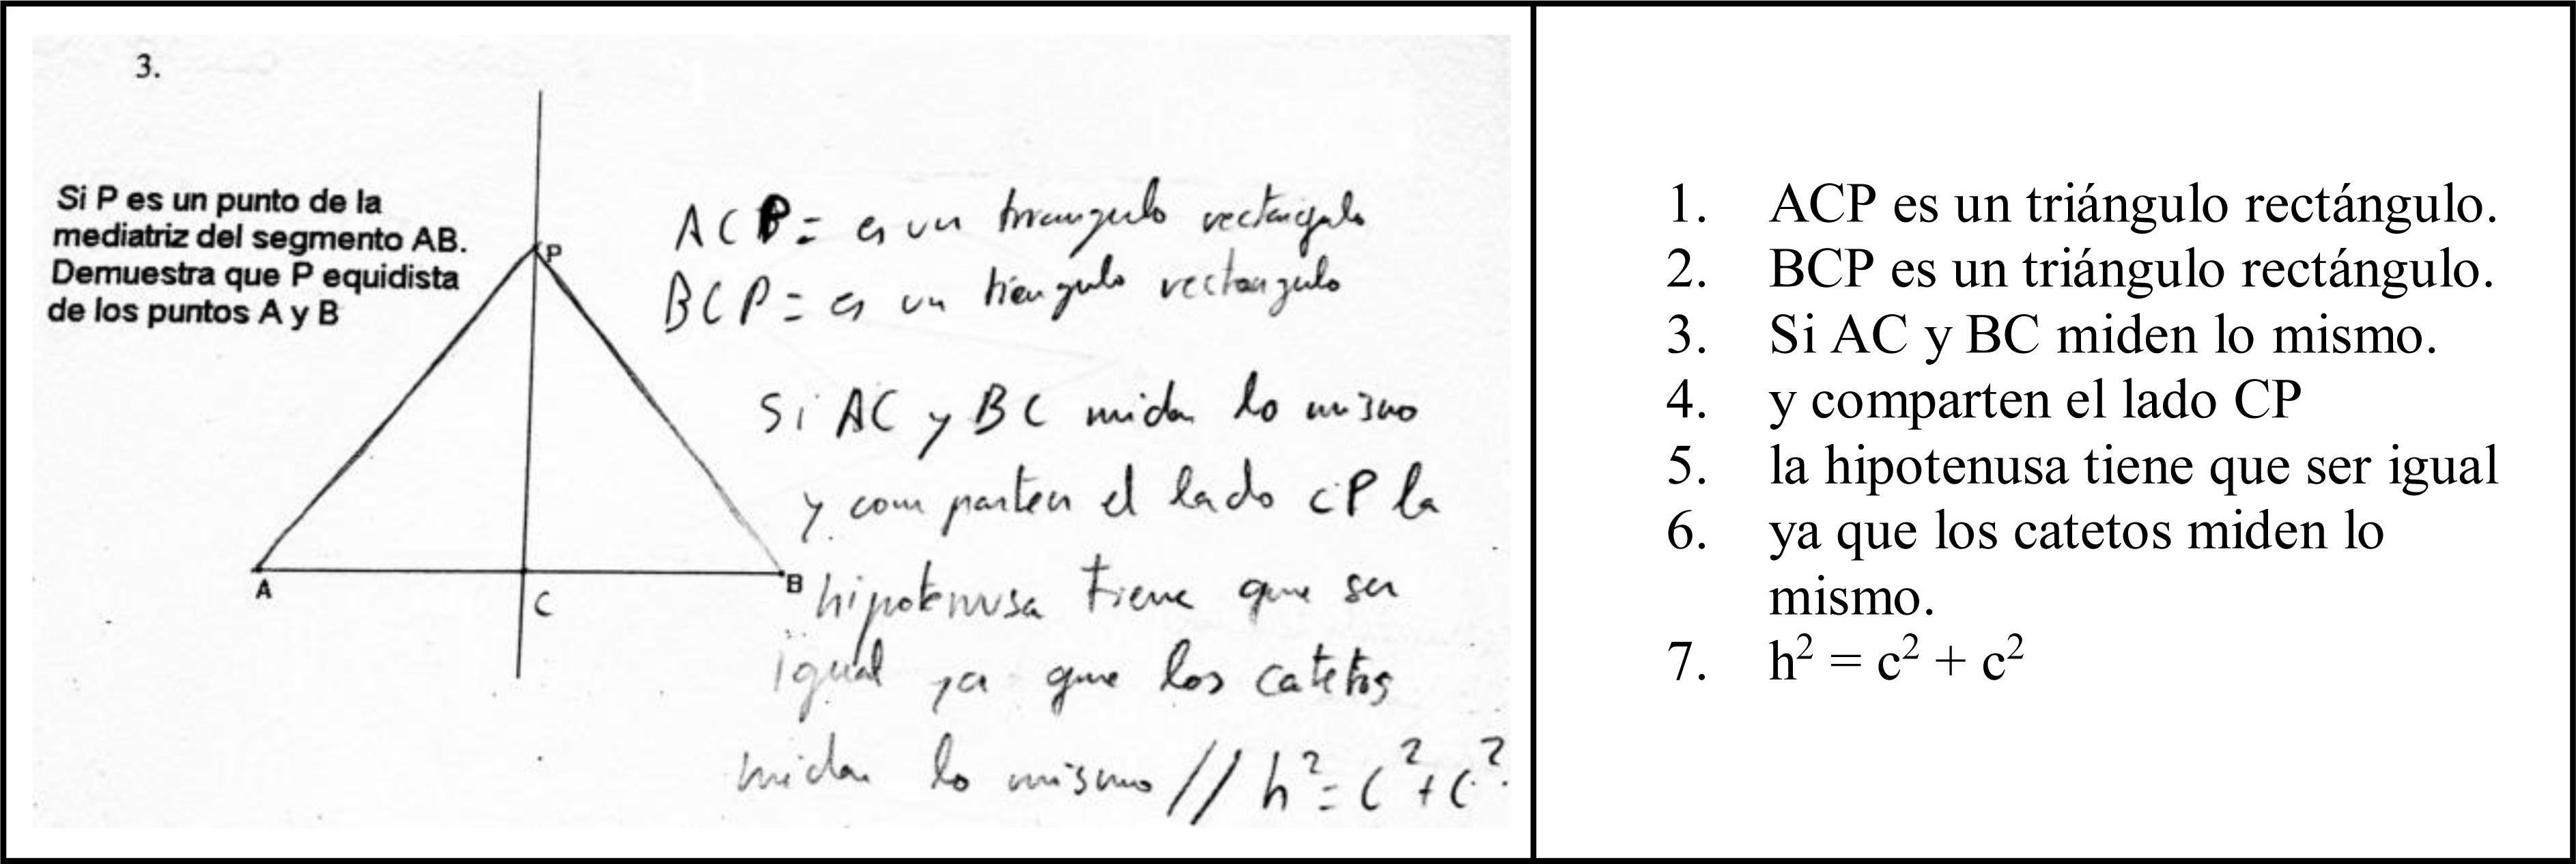 3.
Si P es un punto de la
mediatriz del segmento AB.
Demuestra que P equidista
de los puntos A y B
P
A
C
B
ACP = es un triangulo rectangulo
BCP = es un triangulo rectangulo
Si AC y BC miden lo mismo
y comparten el lado CP la
hipotenusa tiene que ser
igual ya que los catetos
miden lo mismo // h² = c² + c².
1. ACP es un triángulo rectángulo.
2. BCP es un triángulo rectángulo.
3. Si AC y BC miden lo mismo.
4. y comparten el lado CP
5. la hipotenusa tiene que ser igual
6. ya que los catetos miden lo
mismo.
7. h² = c² + c²